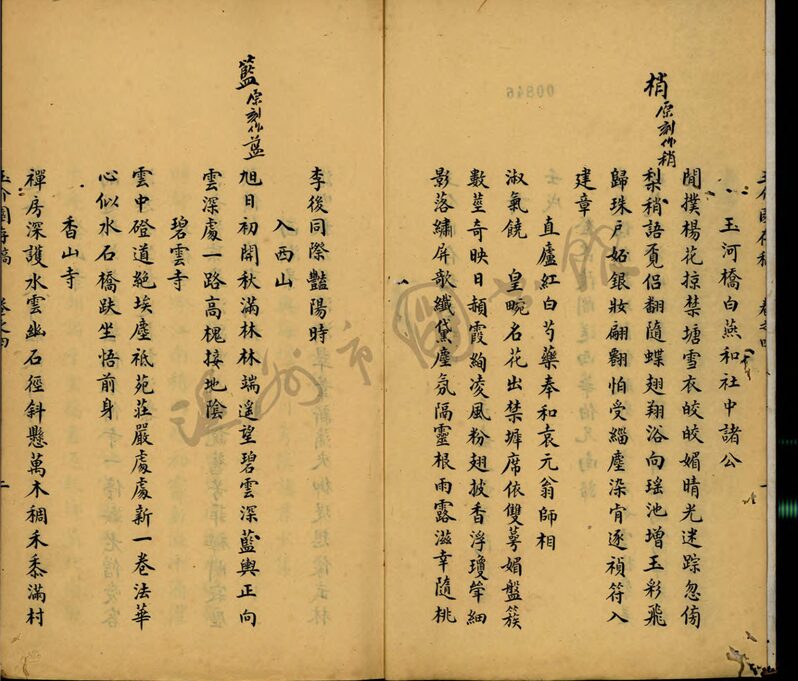 玉介園存稿 卷之四 一
玉河橋白燕和社中諸公
閒撲楊花掠禁塘雪衣皎皎媚晴光迷踪忽傍
梨稍語覔侣翻隨蝶翅翔浴向瑶池增玉彩飛
歸珠戶妬銀妝翩翻怕受緇塵染肯逐禎符入
建章
直廬紅白芍藥奉和袁元翁師相
淑氣饒 皇畹名花出禁墀席依雙萼媚盤簇
數莖奇映日頳霞絢凌風粉翅披香浮瓊斝細
影落繡屏欹纖黛塵氛隔靈根雨露滋幸隨桃
梢原刻作稍
李後同際豔陽時
入西山
旭日初開秋滿林林端遥望碧雲深藍輿正向
雲深處一路高槐接地陰
碧雲寺
雲中磴道絶埃塵祇苑莊嚴處處新一卷法華
心似水石橋趺坐悟前身
香山寺
禪房深護水雲幽石徑斜懸萬木稠禾黍滿村
藍原刻作蓝
玉介園存稿 卷之四 一
温州市圖書館
00846